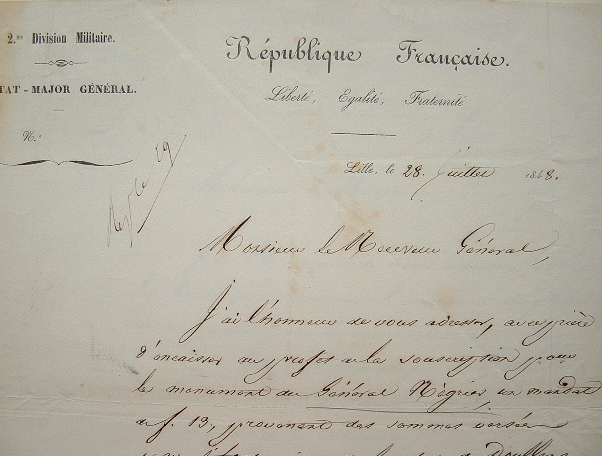 2.me Division Militaire.
TAT-MAJOR GÉNÉRAL.
N.o
République Française.
Liberté, Egalité, Fraternité
Lille, le 28. juillet 1848.
Rep. le 29
Monsieur le Receveur Général,
J'ai l'honneur de vous adresser, avec prière
d'encaisser au profit de la souscription pour
le monument du Général Négrier, un mandat
de f. 13, provenant des sommes versées
de Doullens